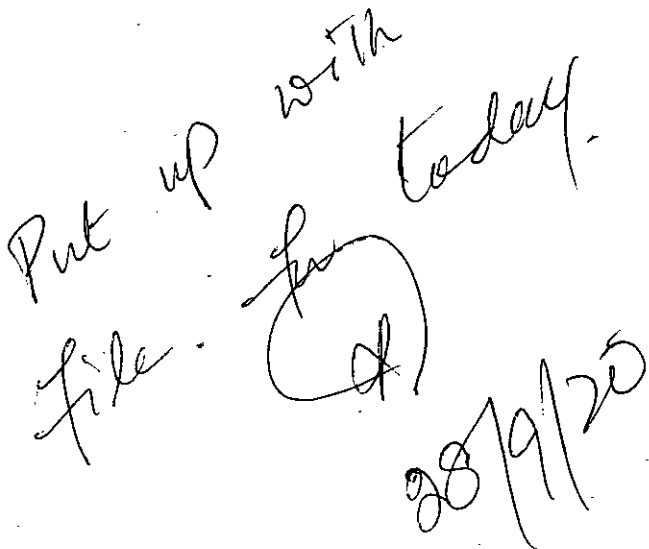 Put up with
file. for today.
28/9/20